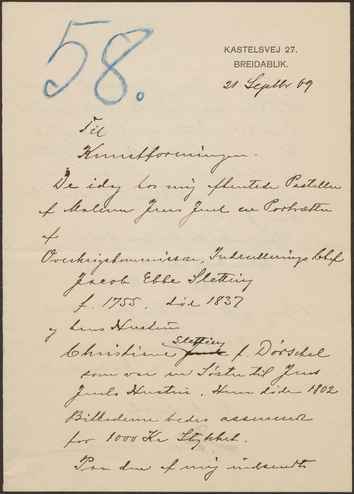 58.
KASTELSVEJ 27.
BREIDABLIK.
21 Septbr 09
Til
Kunstforeningen.
De idag hos mig afhentede Pasteller
af Maleren Jens Juel ere Portrætter
af
Overkrigskommissær, Indrulleringschef
Jacob Ebbe Sletting
f. 1755. død 1837
og hans Hustru
Sletting
Christiane Juel f. Dörschel
som var en Søster til Jens
Juels Hustru. Hun døde 1802
Billederne bedes assureret
for 1000 Kr Stykket.
Paa den af mig indsendte